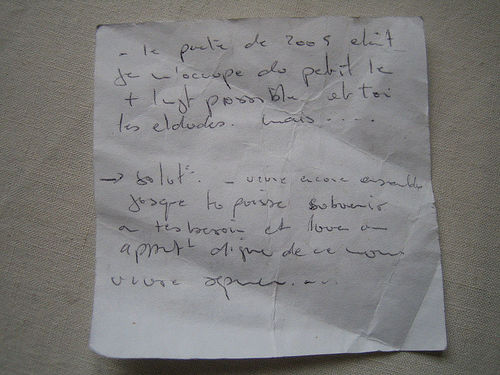 - le pacte de 2009 était
je m'occupe du petit le
+ lgt possible et toi
tes etdudes. mais ....
→ Solut°. - vivre encore ensemble
josque tu puisse subvenir
a tes besoin et louer un
appart digne de ce nom
vivre séparer....